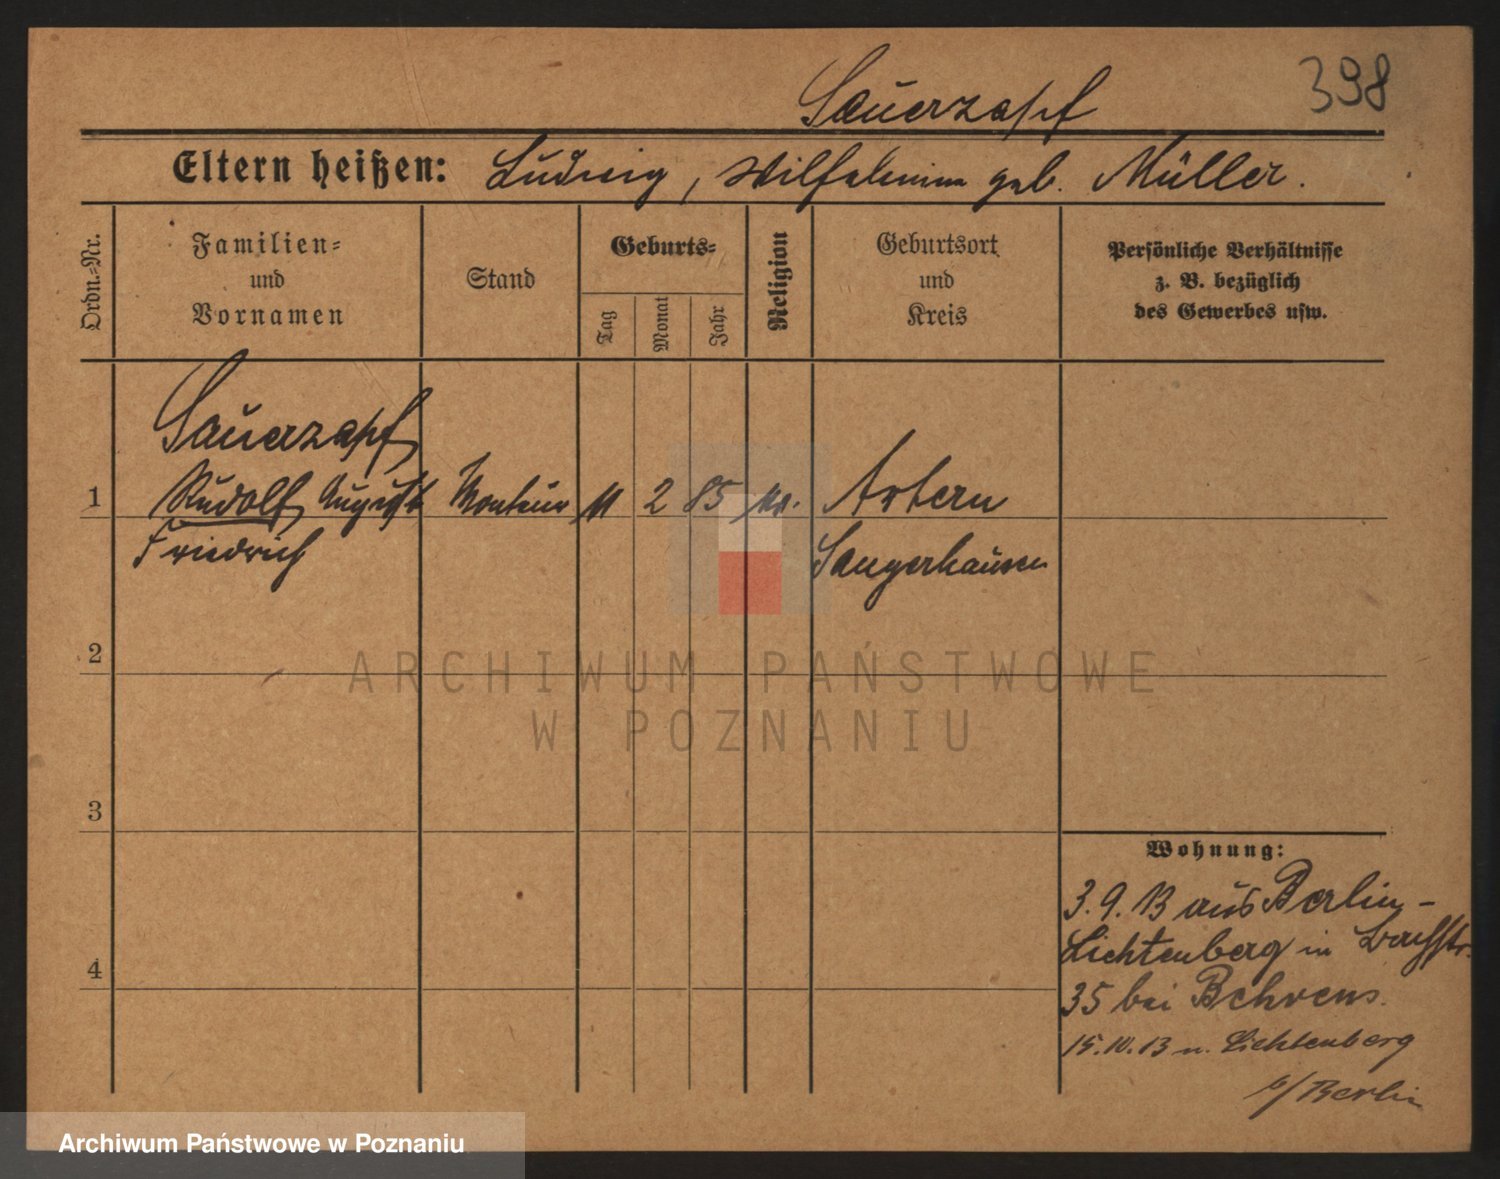 398
Sauerzapf
Eltern heißen: Ludwig, Wilhelmine geb. Müller.
Ordn.=Nr.
Familien=
und
Vornamen
Stand
Geburts=
Tag
Monat
Jahr
Religion
Geburtsort
und
Kreis
Persönliche Verhältnisse
z. B. bezüglich
des Gewerbes usw.
Sauerzapf
1 Rudolf August Monteur 11 2 85 Artern
Friedrich Sangerhausen
2
ARCHIWUM PAŃSTWOWE
W POZNANIU
3
Wohnung:
3.9.13 aus Berlin-
Lichtenberg in
4
35 bei Behrens.
15.10.13 n. Lichtenberg
b/Berlin
Archiwum Państwowe w Poznaniu